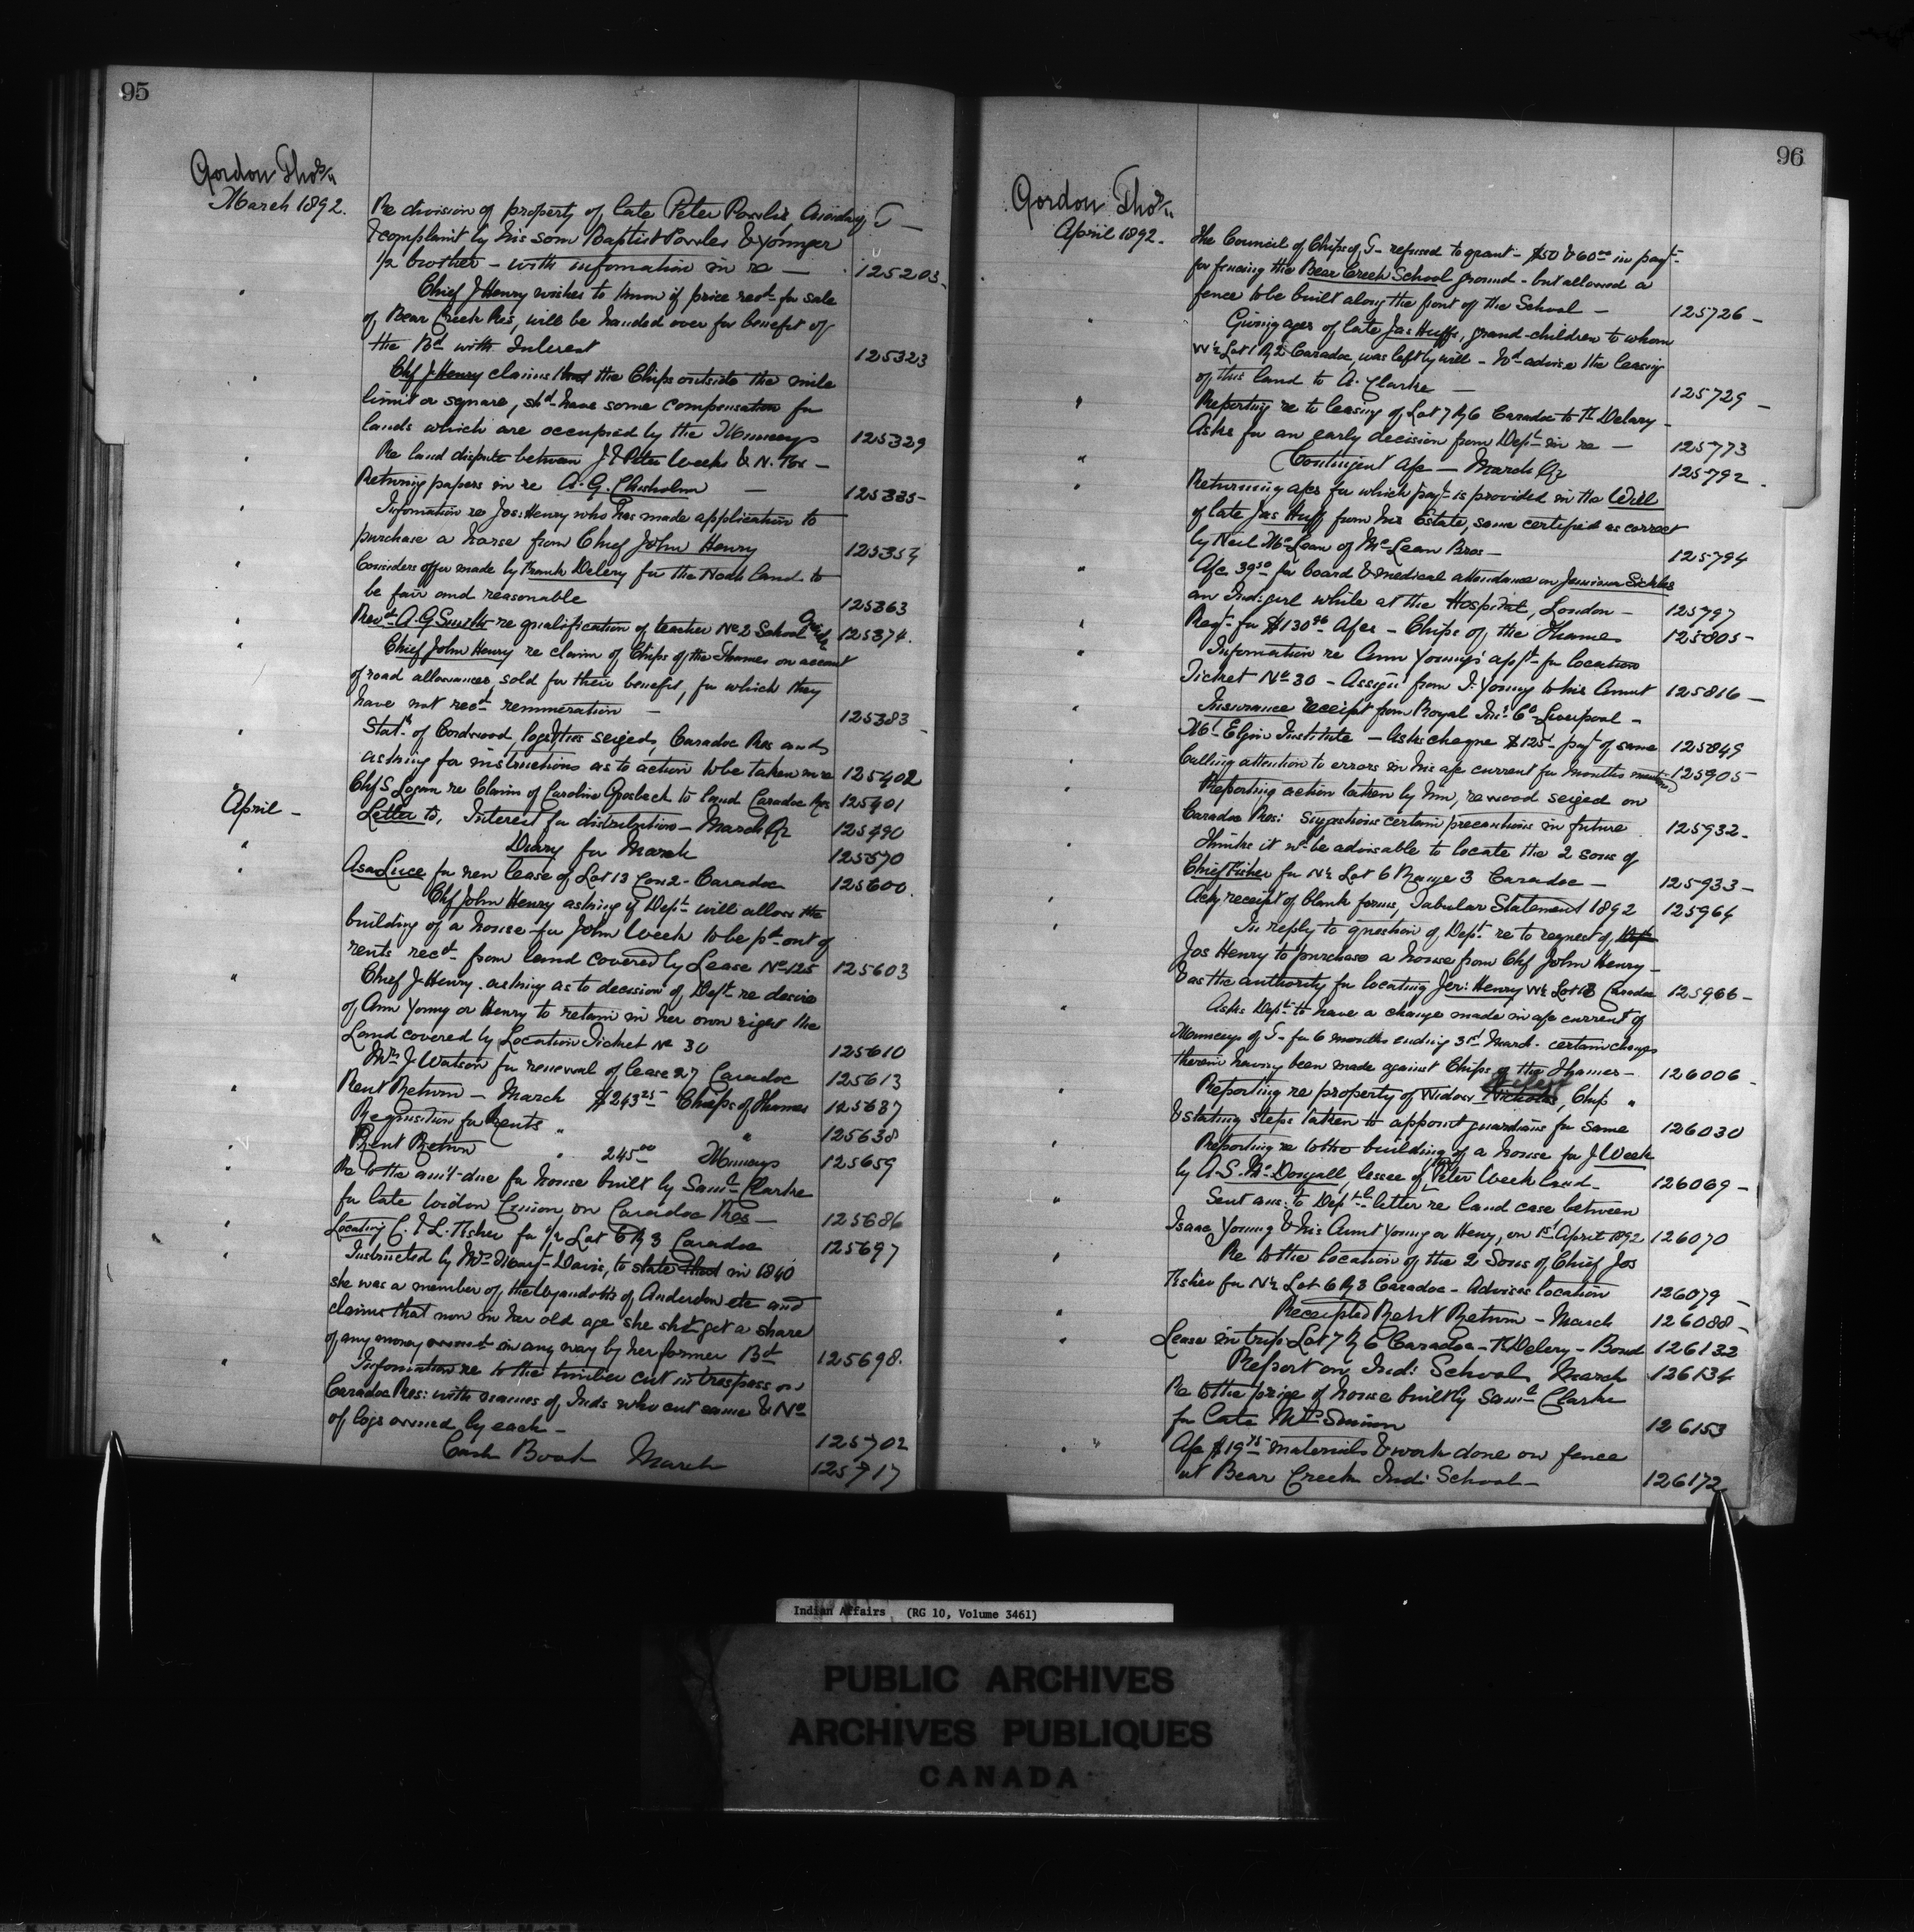 95
Gordon Thos
March 1892.
Re division of property of late Peter Powlis Oneida of T —
& complaint by his son Baptist Powles & younger
1/2 brother - with information in re — 125203
Chief J Henry wishes to know if price recd for sale
of Bear Creek Res, will be handed over for benefit of
the Bd with Interest 125323
Chf J. Henry claims that the Chips outside the mile
limit or square, shd have some compensation for
lands which are occupied by the Munceys 125329
Re land dispute between J. & Peter Weeks & N. Fox —
Returning papers in re A. G. Chisholm — 125335
Information re Jos: Henry who has made application to
purchase a horse from Chief John Henry 125354
Considers offer made by Frank Delery for the Noah land to
be fair and reasonable 125363
Revd A. G Smith re qualification of teacher No 2 School Oneida 125374.
Chief John Henry re claim of Chips of the Thames on account
of road allowances, sold for their benefit, for which they
have not recd remuneration — 125383
Statt of Cordwood, logs, ties seized, Caradoc Res and
asking for instructions as to action to be taken in re 125402
Chf S Logan re Claim of Caroline Grosbeck to land Caradoc Res 125401
April —
Letter to, Interest for distribution — March Qr 125490
Diary for March 125570
Asa Luce for new lease of Lot 13 Con 2 - Caradoc 125600
Chf John Henry asking if Dept will allow the
building of a house for John Week to be pd out of
rents recd from land covered by Lease No 125 125603
Chief J Henry asking as to decision of Dept re desire
of Ann Young or Henry to retain in her own right the
Land covered by Location Ticket No 30 125610
Mrs J Watson for renewal of lease 27 Caradoc 125613
Rent Return — March $243 25 Chips of Thames 125637
Requisition for Rents " " 125638
Rent Return " 245 00 Munceys 125659
Re to the amt due for house built by Saml Clarke
for late widow on Caradoc Res — 125686
Locating C. & L. Fisher for 1/2 Lot 6 R 3 Caradoc 125697
Instructed by Mrs Davis, to state that in 1840
she was a member of the Wyandotts of Anderdon etc and
claims that now in her old age she shd get a share
of any money owned in any way by her former Bd 125698.
Information re to the timber cut in trespass on
Caradoc Res: with names of Inds who cut same & No
of logs owned by each — 125702
Cash Book March 125717
96
Gordon Thos
April 1892.
The Council of Chips of T - refused to grant - $50 & 60 00 in payt
for fencing the Bear Creek School ground - but allowed a
fence to be built along the front of the School — 125726 —
Giving ages of late Jas Huffs, grand-children to whom
W 1/2 Lot 1 R 2 Caradoc, was left by will - Wd advise the leasing
of this land to A. Clarke — 125729 —
Reporting re to leasing of Lot 7 R 6 Caradoc to Fk Delary -
Asks for an early decision from Dept in re — 125773
Contingent a/c — March Qr 125792 -
Returning a/cs for which payt is provided in the Will
of late Jas Huff from his Estate, same certified as correct
by Neil McLean of McLean Bros — 125794
A/c 39 50 for board & medical attendance on Jemima Sickles
an Ind: girl while at the Hospital, London — 125797
Reqt for $130 96 A/cs - Chips of the Thames 125805 -
Information re Ann Young's appt for location
Ticket No 30 - Assign from I. Young to his Aunt 125816 —
Insurance receipt from Royal Ins: Co Liverpool —
Mt Elgin Institute — Asks cheque $125 - payt of same 125849
Calling attention to errors in his a/c current for months 125905 -
Reporting action taken by him, re wood seized on
Caradoc Res: Suggestions certain precautions in future 125932 -
Thinks it wd be advisable to locate the 2 sons of
Chief Fisher for N 1/2 Lot 6 Range 3 Caradoc — 125933 —
Ackg receipt of blank forms, Tabular Statement 1892 125964
In reply to question of Dept re to request of Dept
Jos Henry to purchase a house from Chf John Henry -
& as the authority for locating Jer: Henry W 1/2 Lot 18 Caradoc 125966 -
Asks Dept to have a change made in a/c current of
Munceys of T - for 6 months ending 31st March - certain charges
therein having been made against Chips of the Thames - 126006 -
Reporting re property of Widow Nicholas, Chip "
& stating steps taken to appoint guardians for same 126030
Reporting re to the building of a house for J. Week
by A. S. McDougall, lessee of the Peter Week land - 126069 -
Sent ans: to Dept letter re land case between
Isaac Young & his Aunt Young or Henry, on 1st April 1892 126070
Re to the location of the 2 Sons of Chief Jos
Fisher for N 1/2 Lot 6 R 3 Caradoc - Advises location 126079 —
Receipted Rent Return — March 126088 -
Lease in trip: Lot 7 R 6 Caradoc - F Delery - Bond 126132
Report on Ind: School March 126134
Re to the price of house built by Saml Clarke
for late Mrs 126153
A/c $19 75 materials & work done on fence
at Bear Creek Ind: School — 126172
Indian Affairs (RG 10, Volume 3461)
PUBLIC ARCHIVES
ARCHIVES PUBLIQUES
CANADA